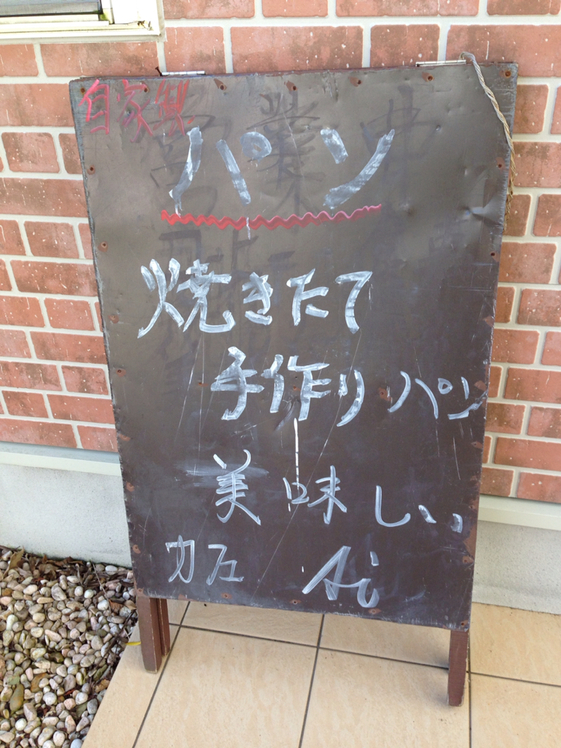 自家製
パン
焼きたて
手作りパン
美味しい
カフェ Ai